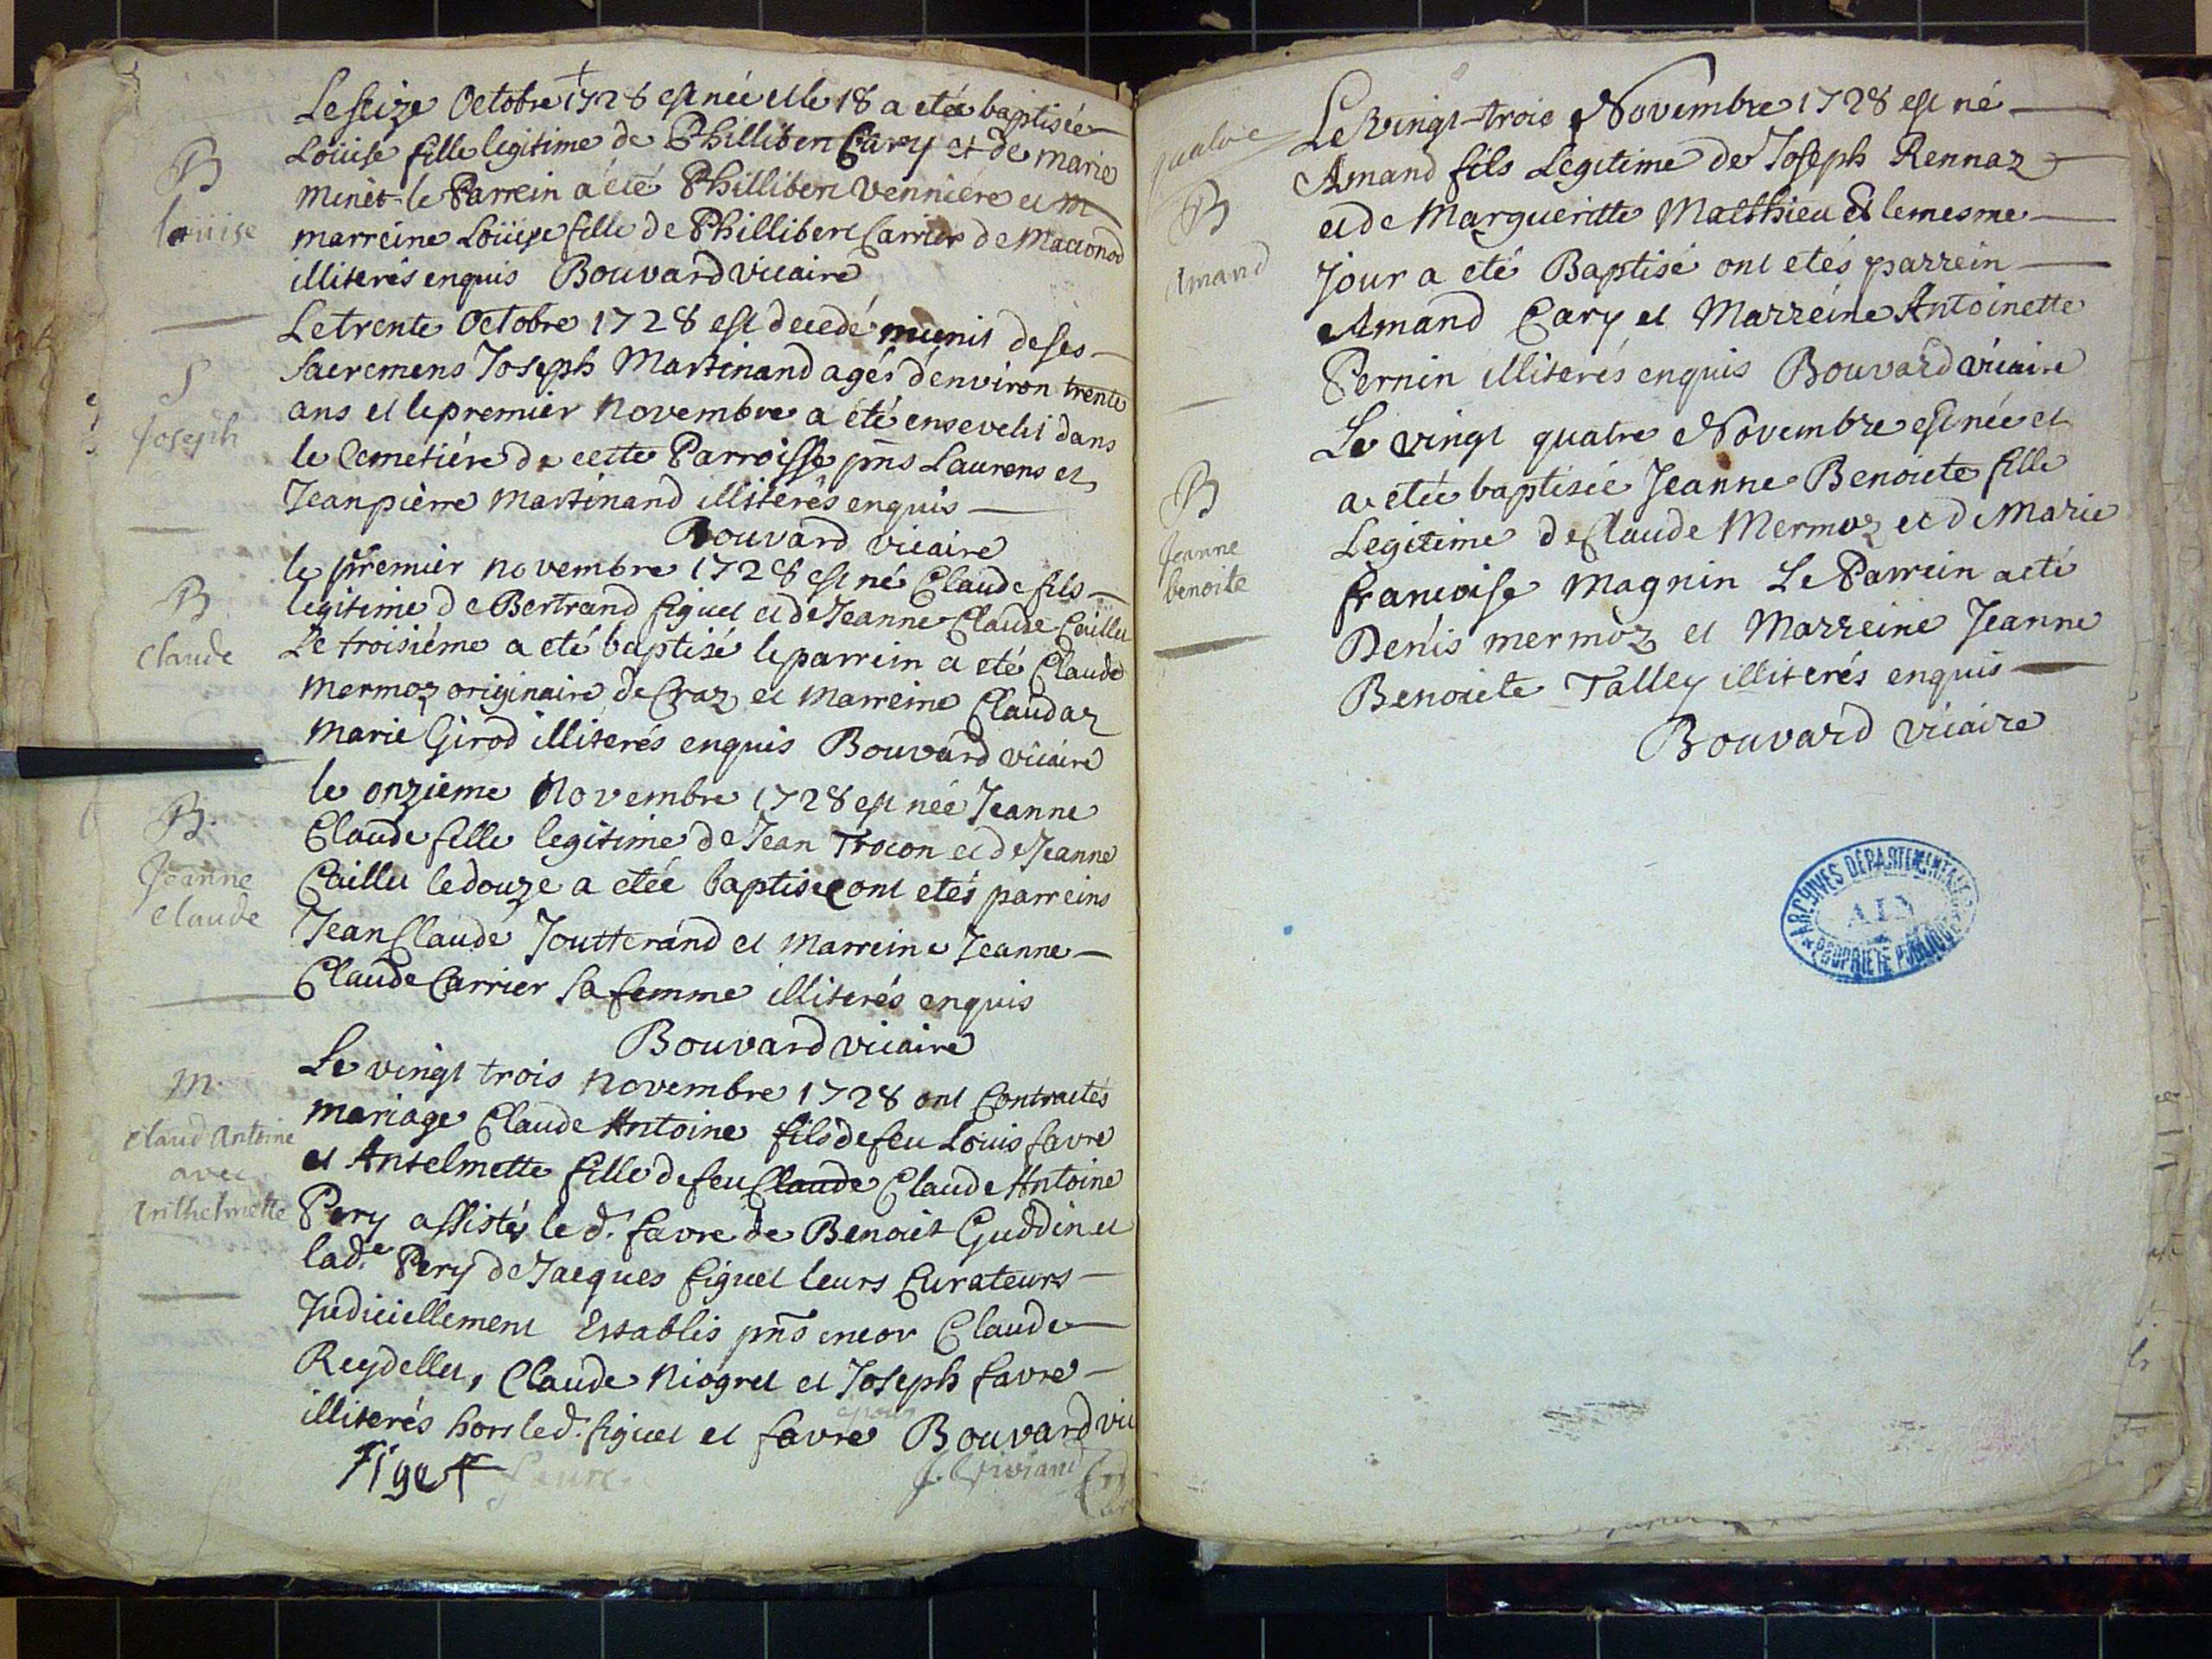 Le seize Octobre 1728 est née et le 18 a etée baptisée
Loüise fille legitime de Phillibert Cary et de marie
minet le Parrein a été Phillibert Venniere et m
marreine Loüise fille de Phillibert Carrier de Macconod
illiterés enquis Bouvard vicaire
B
loüise
Le trente Octobre 1728 est decedé munit de ses
Sacremens Joseph Martinand agés d'environ trente
ans et le premier Novembre a été ensevelit dans
le Cemetiére de cette Parroisse pñs Laurens et
Jean pierre Martinand illiterés enquis
Bouvard vicaire
S
Joseph
le premier novembre 1728 est né Claude fils
legitime de Bertrand figuet et de Jeanne Claude Caillet
Le troisiéme a eté baptisé le parrein a eté Claude
Mermoz originaire de Craz et Marreine Claudaz
Marie Girod illiterés enquis Bouvard vicaire
B
Claude
le onziéme Novembre 1728 est née Jeanne
Claude fille legitime de Jean Trocon et de Jeanne
Caillet le douze a etée baptisée ont etés parreins
Jean Claude Joutterand et Marreine Jeanne
Claude Carrier sa femme illiterés enquis
Bouvard vicaire
B
Jeanne
Claude
Le vingt trois Novembre 1728 ont Contractés
mariage Claude Antoine fils de feu Louis favre
et Antelmette fille de feu Claude Claude Antoine
Pery assistés le d. favre de Benoit Guddin et
la d.e Pery de Jacques figuet leurs Curateurs
Judiciellement Establis pñs encor Claude
Reydellet, Claude Niogret et Joseph favre
illiterés hors le d. figuet et favre Bouvard vic
epoux
Figet favre J. Viviand
M
Claud Antoine
avec
Anthelmette
Le vingt-trois Novembre 1728 est né
Amand fils Legitime de Joseph Rennaz
et de Margueritte Matthieu Et le mesme
Jour a eté Baptisé ont etés parrein
Amand Cary et Marreine Antoinette
Pernin illiterés enquis Bouvard vicaire
B
Amand
Le vingt quatre Novembre est née et
a etée baptisée Jeanne Benoite fille
Legitime de Claude Mermoz et de Marie
francoise Magnin Le Parrein a eté
Denis mermoz et Marreine Jeanne
Benoiete Talley illiterés enquis
Bouvard vicaire
B
Jeanne
benoite
ARCHIVES DÉPARTEMENTALES
AIN
PROPRIÉTÉ PUBLIQUE